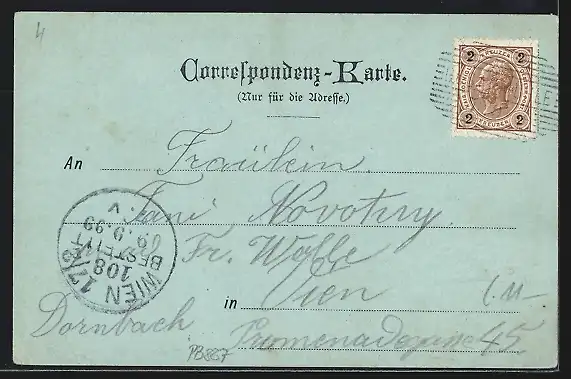 4
Correspondenz-Karte.
(Nur für die Adresse.)
2 2
2 2
An Fräulein
Fani Novotny.
Fr. Wolfe
in Wien
Dornbach Promenadegasse 45
WIEN 17/2
108
BESTELLT
9.99
V
PB887